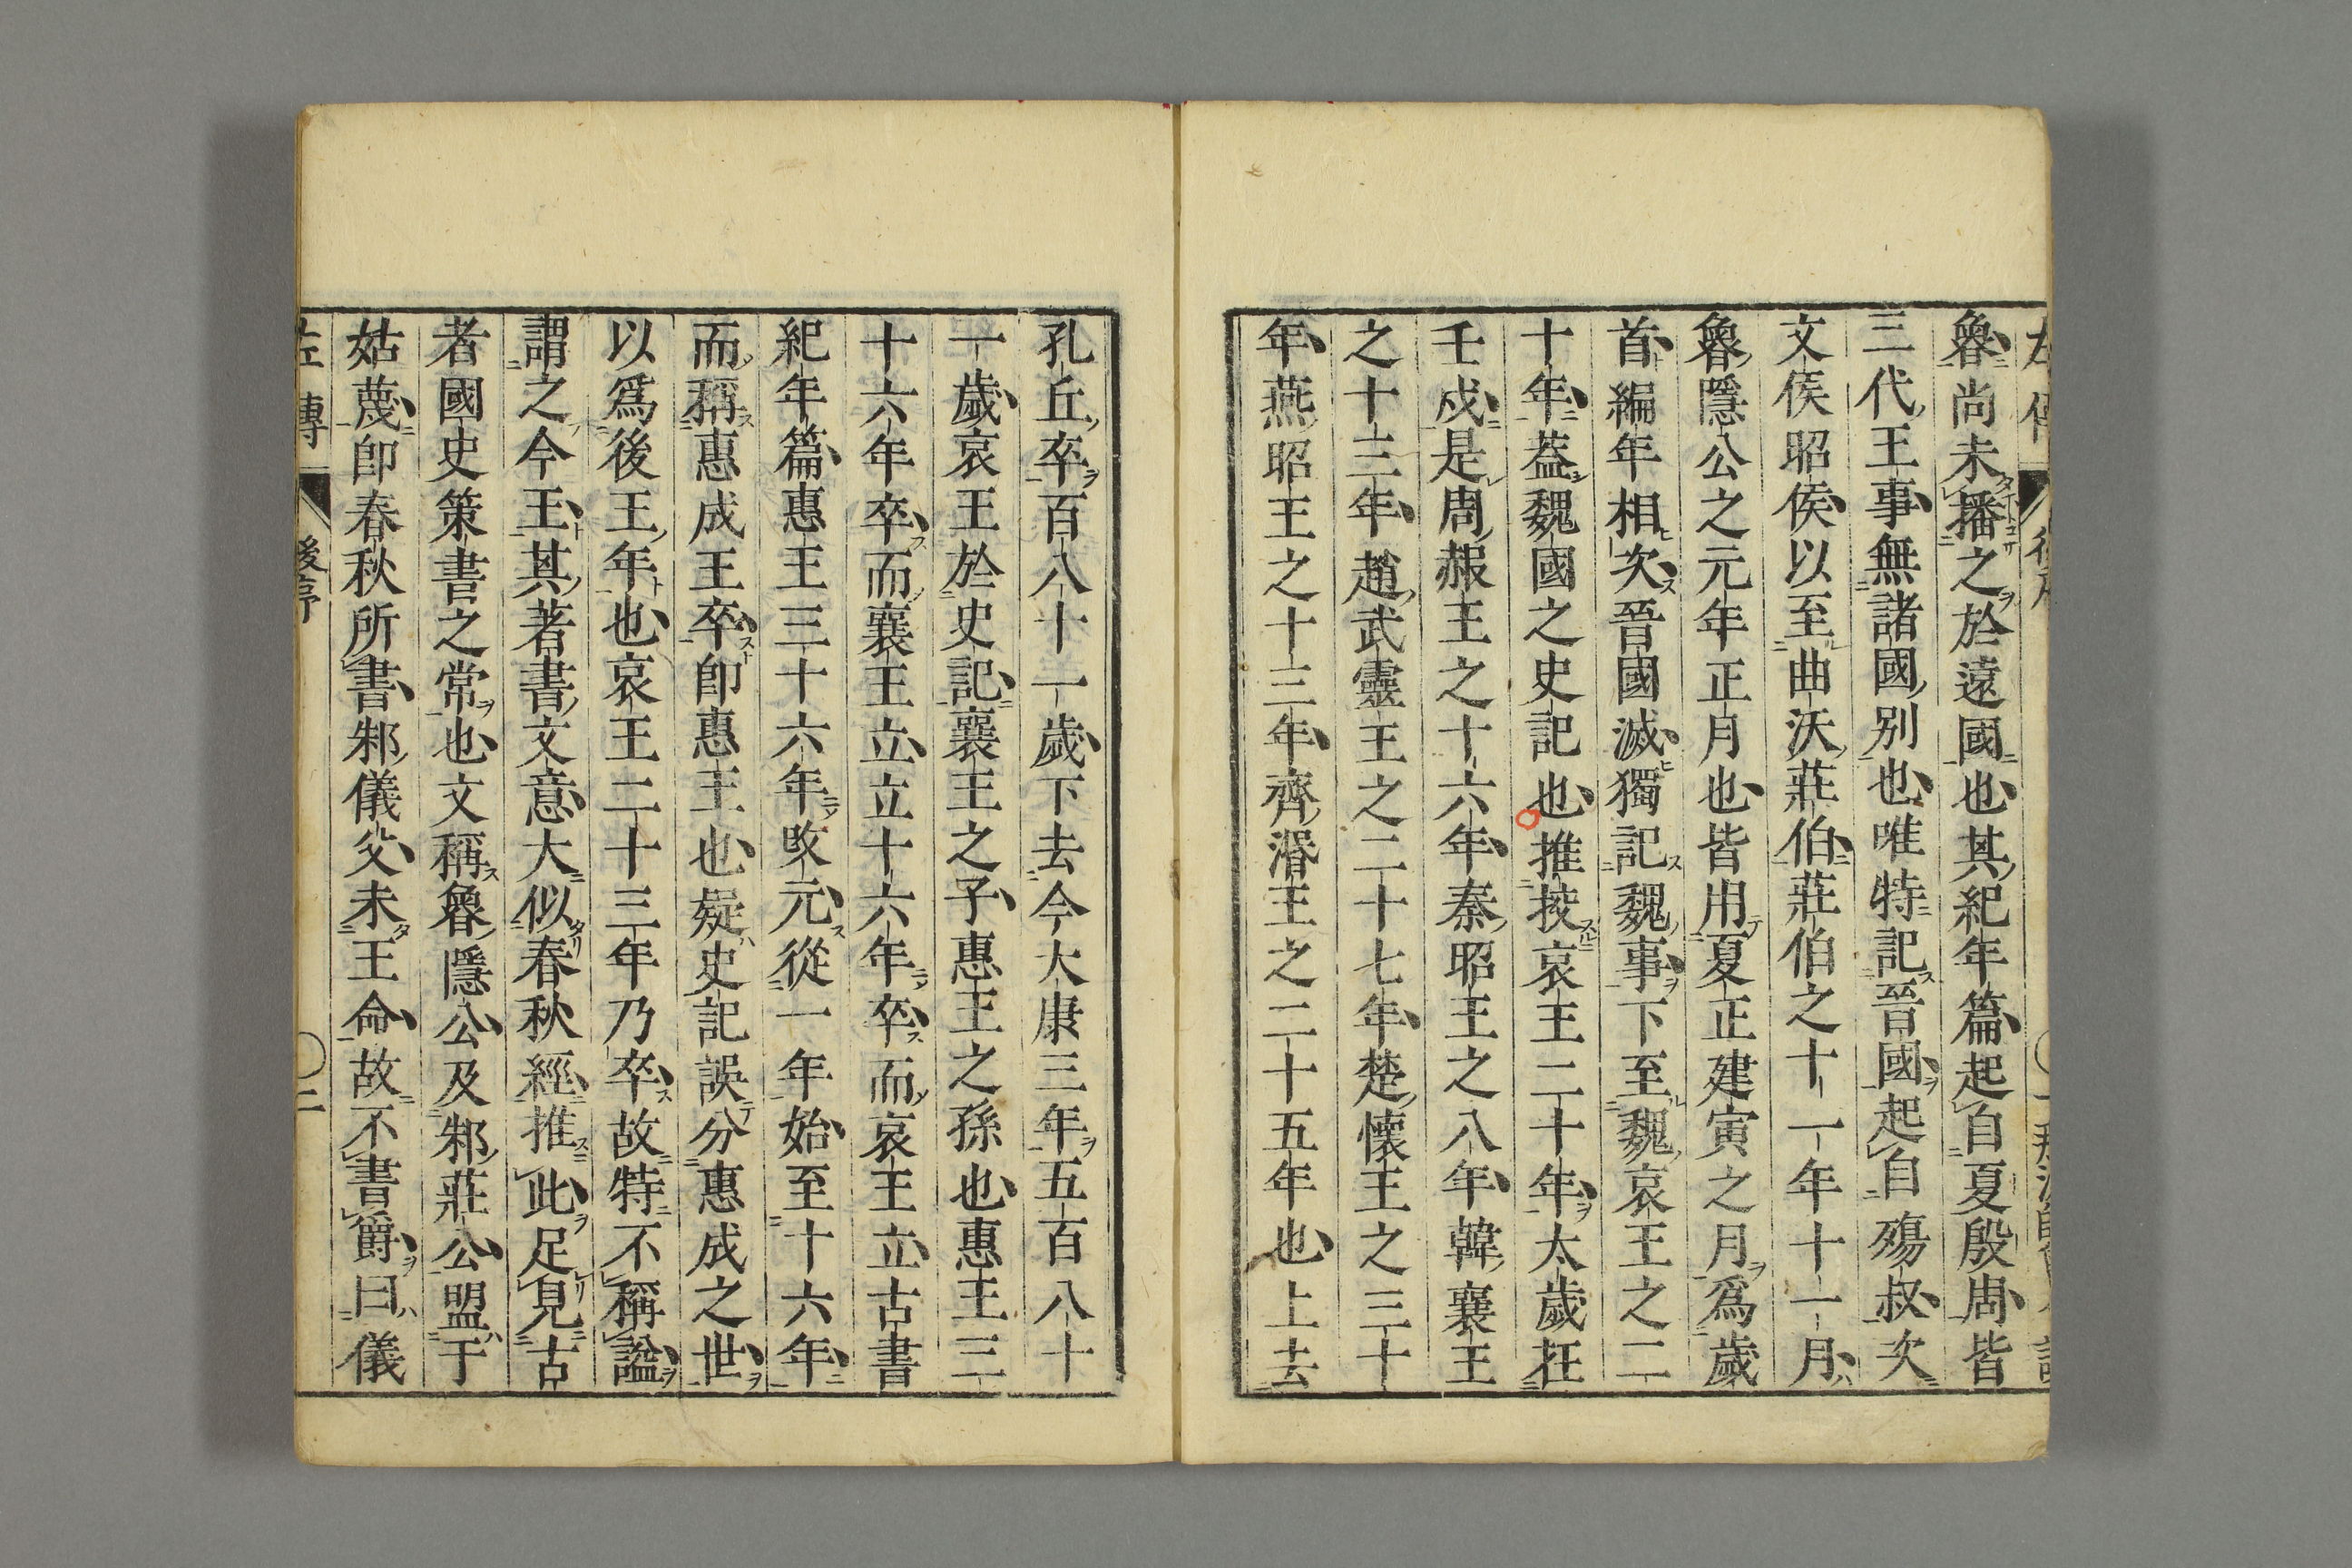 魯尚未播之於遠國也其紀年篇起自夏殷周皆
三代王事無諸國別也唯特記晉國起自殤叔次
文侯昭侯以至曲沃莊伯莊伯之十一年十一月
魯隱公之元年正月也皆用夏正建寅之月爲歲
首編年相次晉國滅獨記魏事下至魏哀王之二
十年蓋魏國之史記也推挍哀王二十年太歲在
壬戌是周赧王之十六年秦昭王之八年韓襄王
之十三年趙武靈王之二十七年楚懷王之三十
年燕昭王之十三年齊湣王之二十五年也上去
孔丘卒百八十一歲下去今大康三年五百八十
一歲哀王於史記襄王之子惠王之孫也惠王三
十六年卒而襄王立立十六年卒而哀王立古書
紀年篇惠王三十六年改元從一年始至十六年
而稱惠成王卒即惠王也疑史記誤分惠成之世
以爲後王年也哀王二十三年乃卒故特不稱謚
謂之今王其著書文意大似春秋經推此足見古
者國史策書之常也文稱魯隱公及邾莊公盟于
姑蔑即春秋所書邾儀父未王命故不書爵曰儀
左傳 後序 二